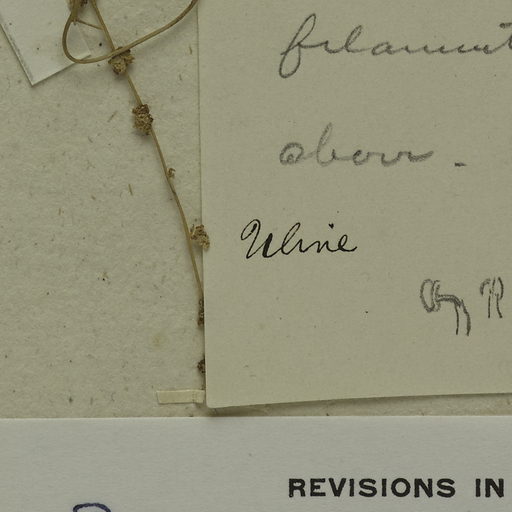 filament
above -
Uline
REVISIONS IN